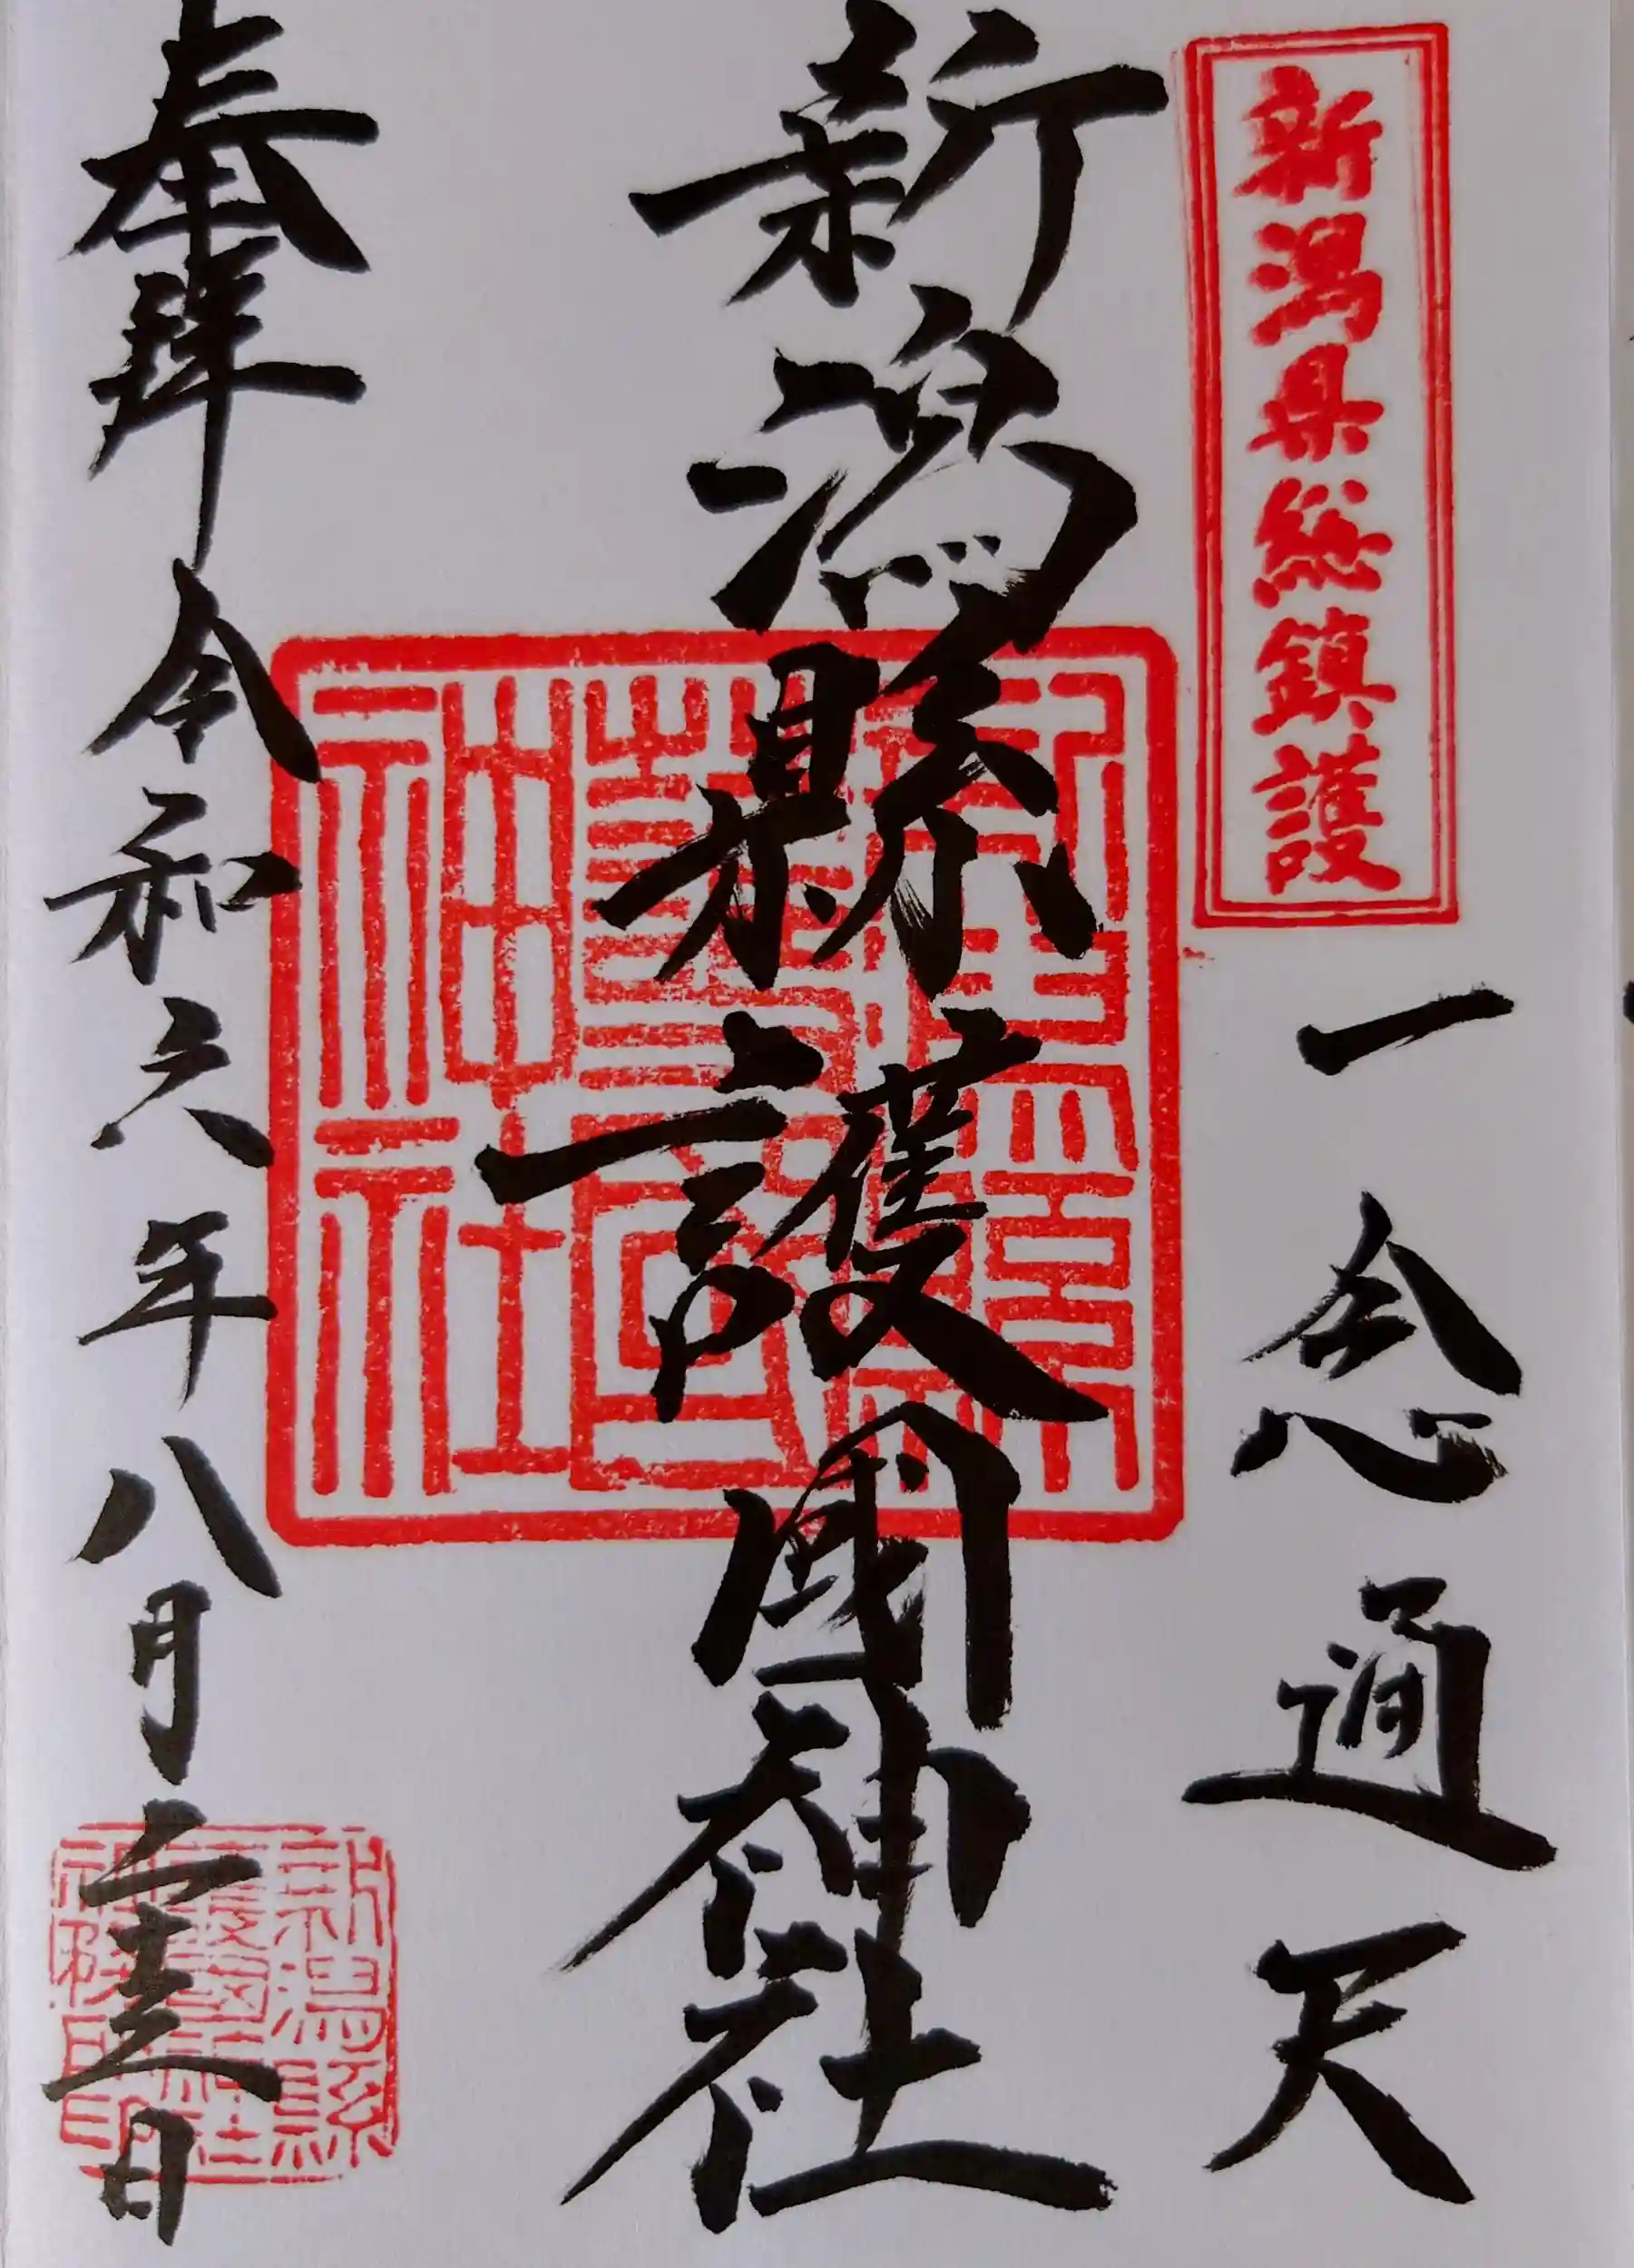 新潟県総鎮護
一念通天
新潟縣護國神社
新潟縣
護國
神社
奉拝 令和六年八月二十五日
新潟縣
護國神社